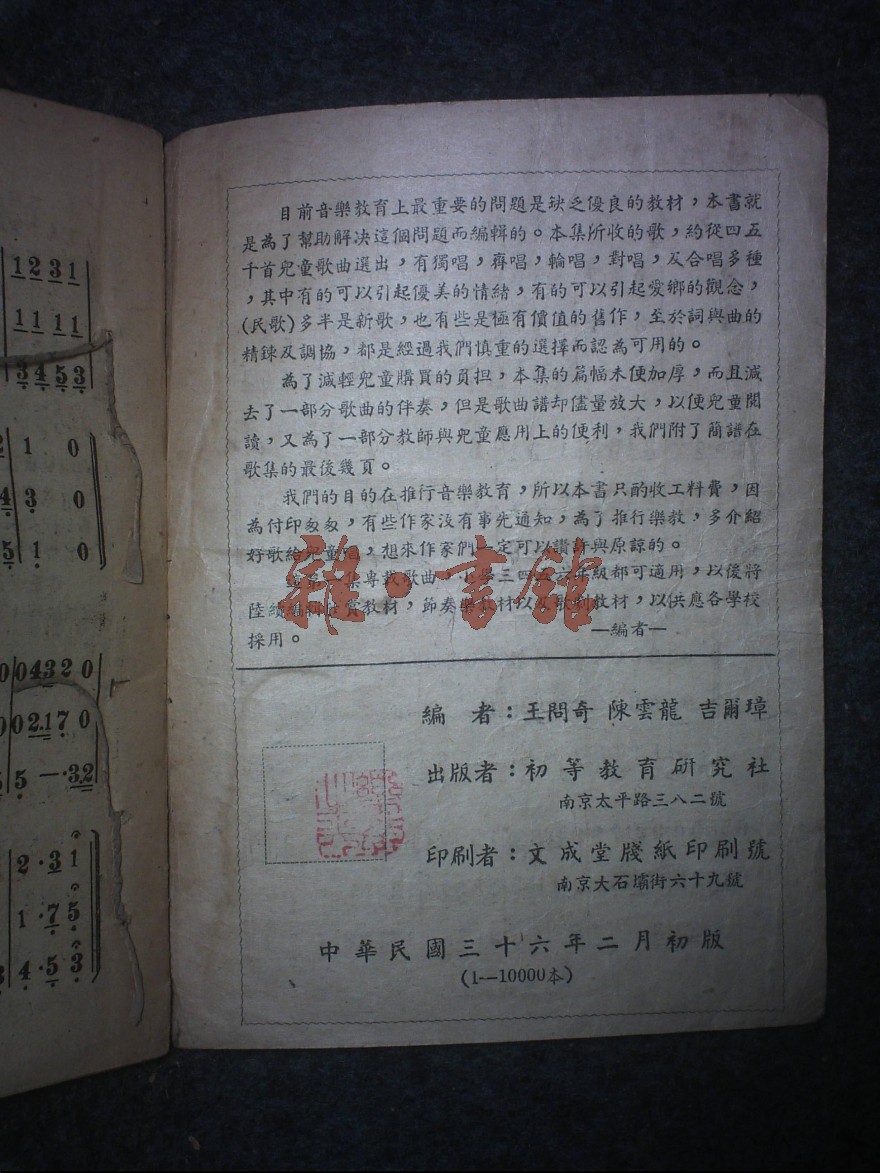 1 2 3 1
1 1 1 1
3 4 5 3
1 0
3 0
1 0
0 4 3 2 0
0 0 2.1 7 0
5 — · 3 2
2 · 3 1
1 · 7 5
4 · 5 3
目前音樂教育上最重要的問題是缺乏優良的教材，本書就
是為了幫助解決這個問題而編輯的。本集所收的歌，約從四五
千首兒童歌曲選出，有獨唱，齊唱，輪唱，對唱，及合唱多種
，其中有的可以引起優美的情緒，有的可以引起愛鄉的觀念，
(民歌)多半是新歌，也有些是極有價值的舊作，至於詞與曲的
精鍊及調協，都是經過我們慎重的選擇而認為可用的。
為了減輕兒童購買的負担，本集的篇幅未便加厚，而且減
去了一部分歌曲的伴奏，但是歌曲譜却儘量放大，以便兒童閱
讀，又為了一部分教師與兒童應用上的便利，我們附了簡譜在
歌集的最後幾頁。
我們的目的在推行音樂教育，所以本書只酌收工料費，因
為付印匆匆，有些作家沒有事先通知，為了推行樂教，多介紹
好歌給兒童唱，想來作家們一定可以讚許與原諒的。
這第一集專載歌曲，小學三四五六年級都可適用，以後將
陸續編料欣賞教材，節奏樂教材以及歌劇教材，以供應各學校
採用。
—編者—
雜·書館
編 者：王問奇 陳雲龍 吉爾璋
出版者：初等教育研究社
南京太平路三八二號
印刷者：文成堂牋紙印刷號
南京大石壩街六十九號
中華民國三十六年二月初版
(1--10000本)